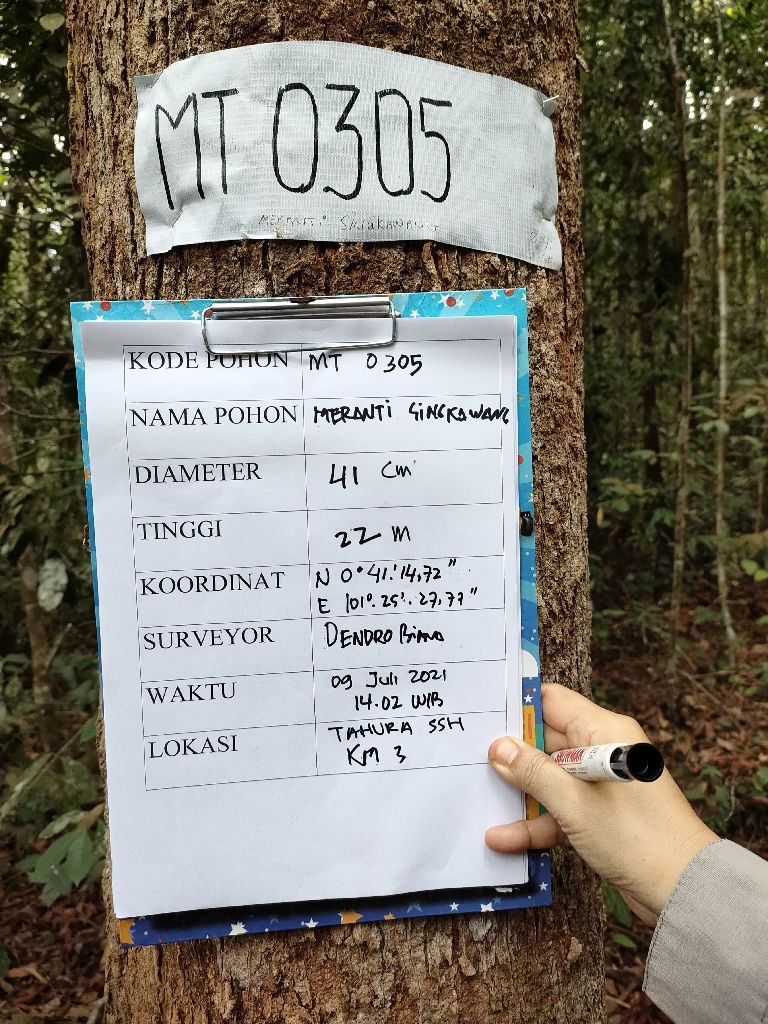 MT 0305
MERANTI SINGKAWANG
KODE POHON MT 0305
NAMA POHON MERANTI SINGKAWANG
DIAMETER 41 cm
TINGGI 22 m
KOORDINAT N 0° 41.' 14,72"
E 101°. 25'. 27,77"
SURVEYOR DENDRO BIMA
WAKTU 09 Juli 2021
14.02 WIB
LOKASI TAHURA SSH
KM 3
SNOWMAN